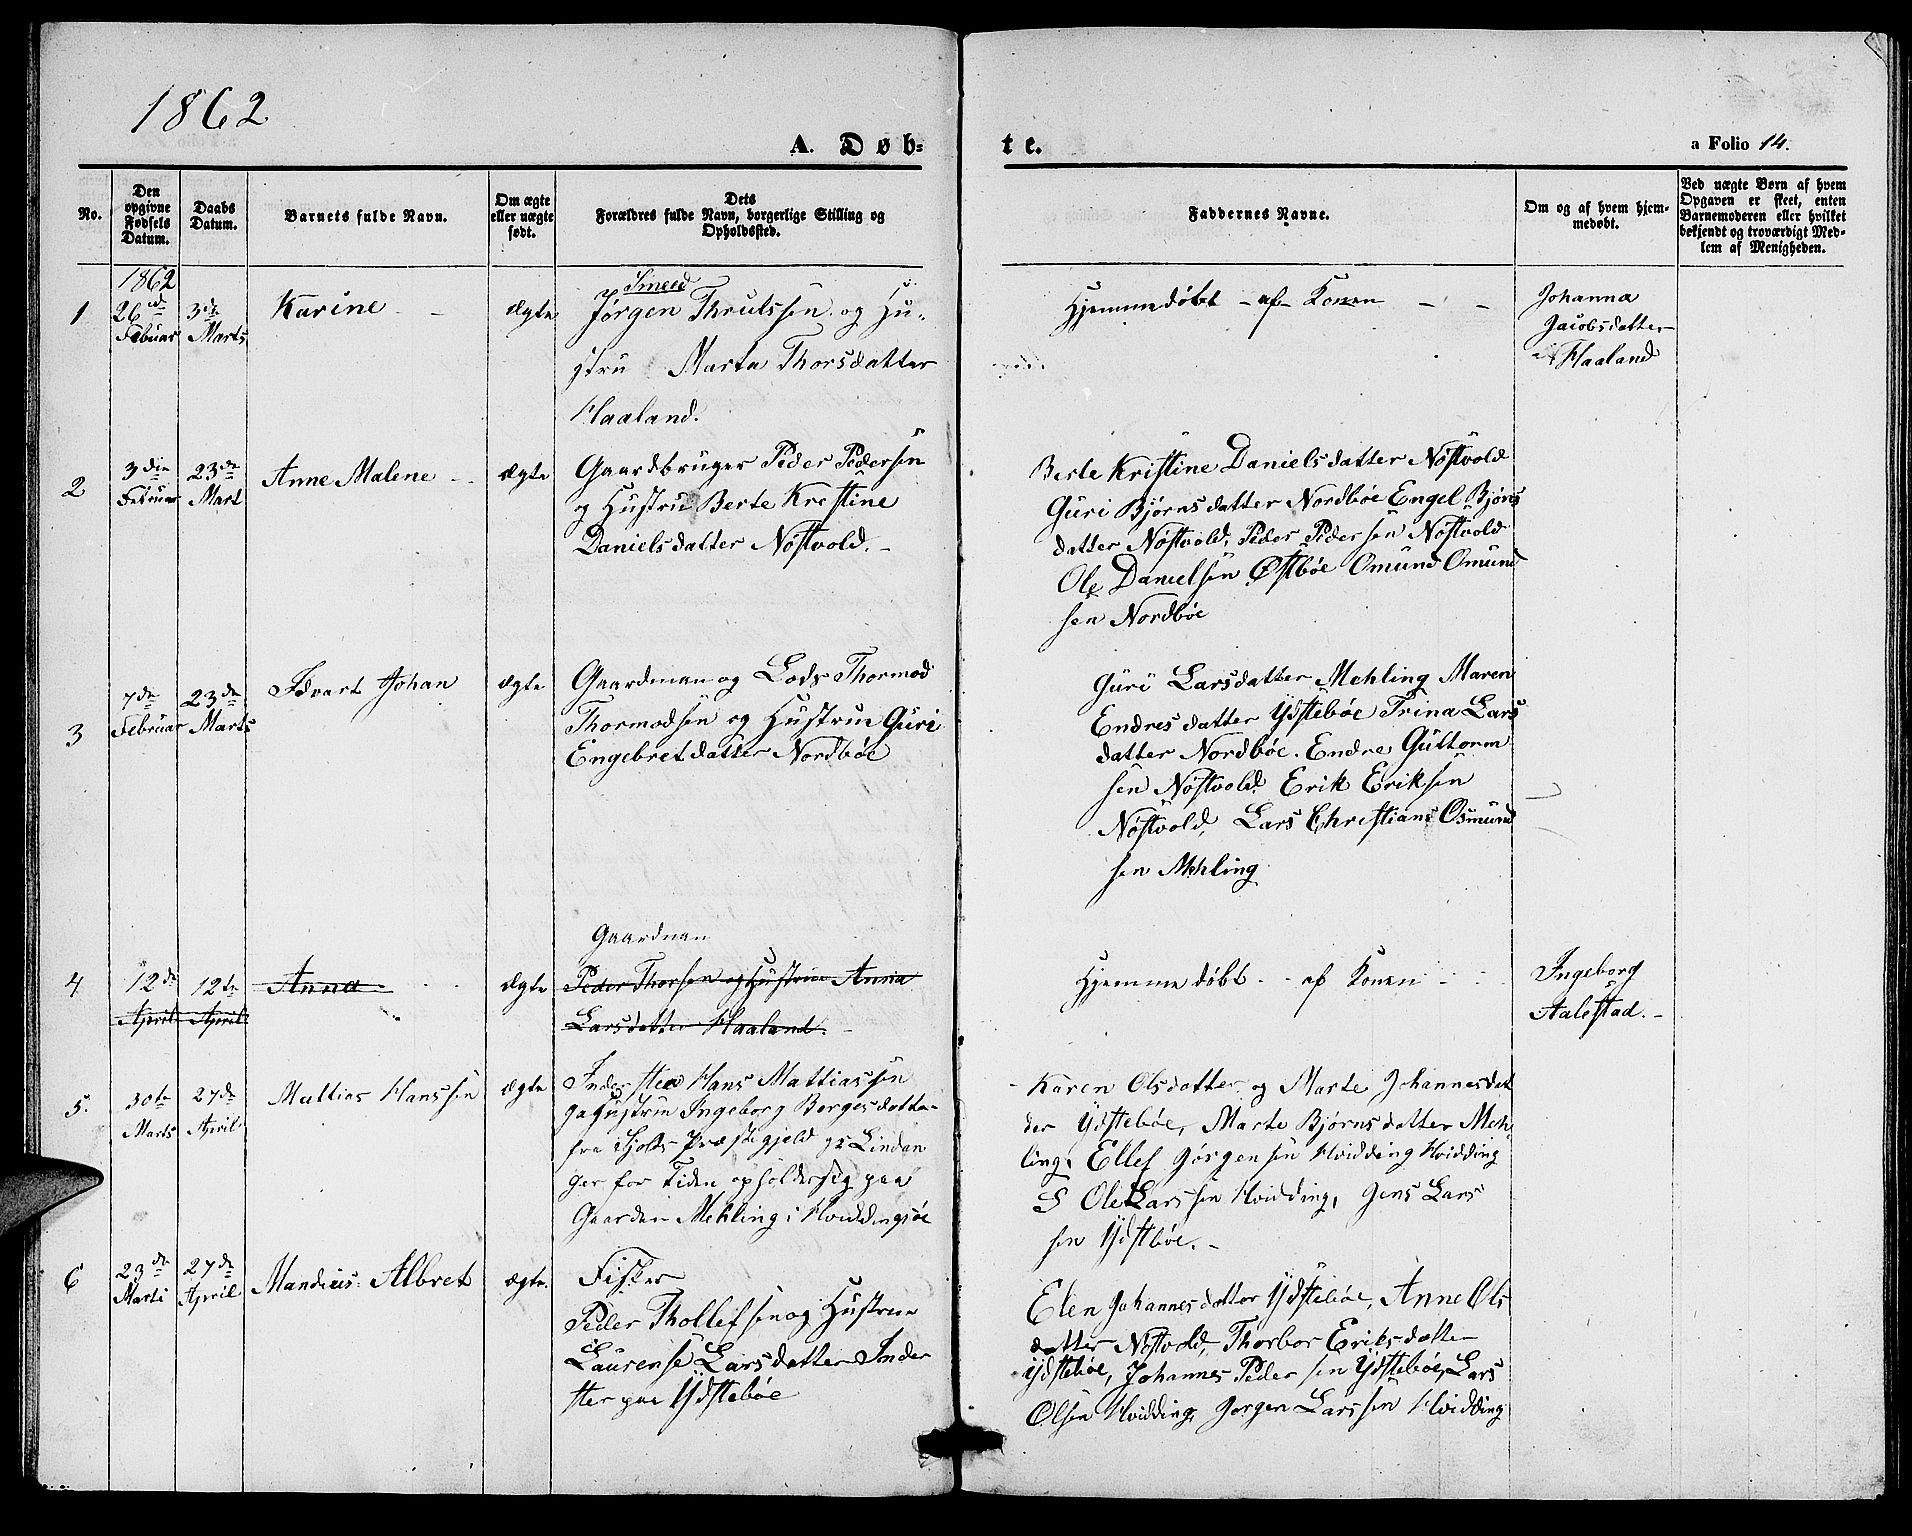 1862
A. Døb=
te.
a Folio 14.
No.
Den opgivne Fødsels Datum.
Daabs Datum.
Barnets fulde Navn.
Om ægte eller uægte født.
Dets Forældres fulde Navn, borgerlige Stilling og Opholdssted.
Faddernes Navne.
Om og af hvem hjem-
medøbt.
Ved uægte Børn af hvem
Opgaven er skeet, enten
Barnemoderen eller hvilket
bekjendt og troværdigt Med-
lem af Menigheden.
1862
1
26de
Febuar
3de
Marts
Karine
Ægte
Smeed
Jørgen Thrulssen og Hu-
stru Marta Thorsdatter
Haaland.
Hjemmedøbt - af Konen
Johanna
Jacobsdatter
Haaland
2
3die
Februar
23de
Mart
Anne Malene
ægte
Gaardbruger Peder Pedersen
og Hustru Berte Krestine
Danielsdatter Nøstvold.
Berte Kristine Danielsdatter Nøstvold
Guri Bjørnsdatter Nordbøe Engel Bjøns
datter Nøstvold, Peder Pedersen Nøstvold
Ole Danielsen Østbøe Omund Omund
sen Nordbøe
3
7de
Februar
23de
Marts
Edvart Johan
ægte
Gaardman og Lods Thormod
Thormodsen og Hustrue Guri
Engebretdatter Nordbøe
Guri Larsdatter Mehling Maren
Endresdatter Ydstebøe Trina Lars
datter Nordbøe. Endre Guttorm
sen Nøstvold Erik Eriksen
Nøstvold, Lars Christians Osmund
sen Mehling
4
12de
April
12te
April
Anna
Ægte
Gaardman
Peder Thorsen og Hustrue Anna
Larsdatter Haaland.
Hjemmedøbt - af Konen
Ingeborg
Aalestad.
5.
30te
Marts
27de
April
Mattias Hanssen
ægte
Indersted Hans Mattiassen
Hustrue Ingeborg Borgesdatter
fra Skjolds Præstegjeld Lindan
ger for Tiden opholder sig paa
Gaarden Mehling i Hviddingsøe
Karen Olsdatter og Marte Johannesdat
der Ydstebøe, Marte Bjørnsdatter Meh
ling, Ellef Jørgensen Hvidding Hvidding
S Ole Larssen Hvidding, Jens Lars
sen Ydstbøe.
6
23de
Marti
27de
April
Mandius Albret
ægte.
Fisker
Peder Thollefsen og Hustrue
Laurense Larsdatter Inder
ster paa Ydstebøe
Elen Johannesdatter Ydstebøe, Anne Ols
datter Nøstvold, Thorbor Eriksdatter
Ydstebøe, Johannes Pedersen Ydstebøe, Lars
Olsen Hvidding, Jorgen Larssen Hvidding